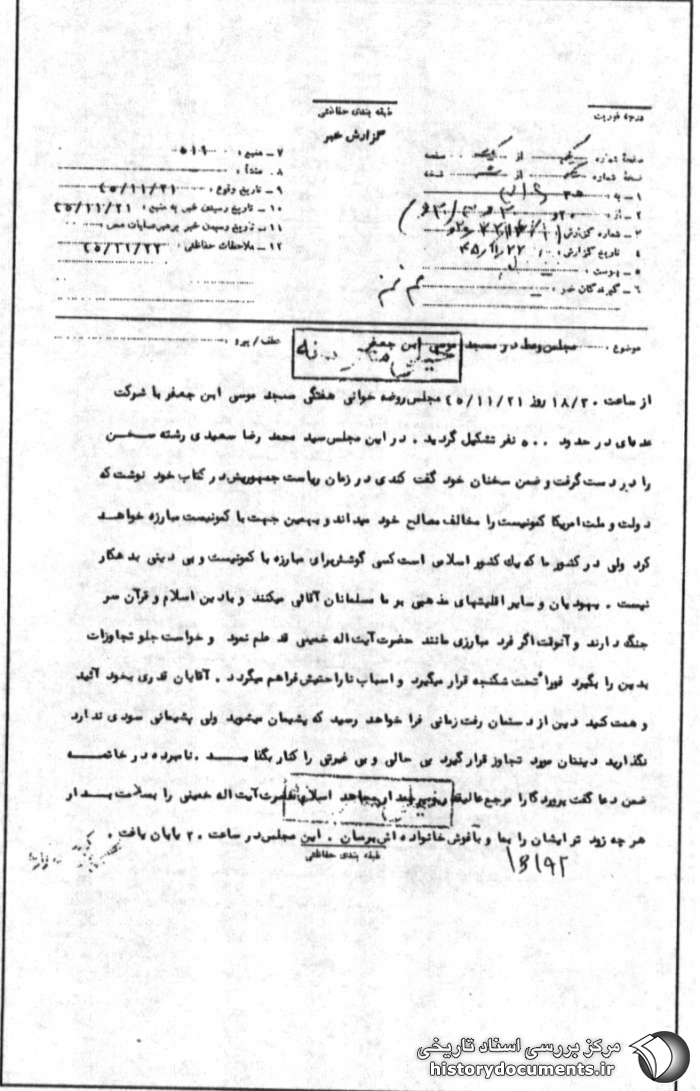 درجه فوریت
طبقه بندی حفاظتی
گزارش خبر
صفحه شماره یک از یک صفحه
نسخه شماره از نسخه
۱ – به :
۲ – از :
۳ – شماره گزارش :
۴ تاریخ گزارش : ۴۵/۱۱/۲۲
۵ – پیوست :
۶ – گیرندگان خبر :
۷ – منبع : ۵۱۹
۸ – منشأ :
۹ – تاریخ وقوع : ۴۵/۱۱/۲۱
۱۰ – تاریخ رسیدن خبر به منبع : ۴۵/۱۱/۲۱
۱۱ – تاریخ رسیدن خبر برهبر عملیات محل :
۱۲ – ملاحظات حفاظتی : ۴۵/۱۱/۲۲
موضوع : مجلس وعظ در مسجد موسی ابن جعفر عطف / پیرو :
از ساعت ۱۸/۳۰ روز ۴۵/۱۱/۲۱ مجلس روضه خوانی هفتگی مسجد موسی ابن جعفر با شرکت
عده‌ای در حدود ۵۰۰ نفر تشکیل گردید . در این مجلس سید محمد رضا سعیدی رشته سخن
را در دست گرفت و ضمن سخنان خود گفت کندی در زمان ریاست جمهوریش در کتاب خود نوشت که
دولت و ملت امریکا کمونیست را مخالف مصالح خود میداند و بهمین جهت با کمونیست مبارزه خواهد
کرد ولی در کشور ما که یک کشور اسلامی است کسی گوشش برای مبارزه با کمونیست و بی دینی بدهکار
نیست . یهودیان و سایر اقلیتهای مذهبی بر ما مسلمانان آقائی میکنند و با دین اسلام و قرآن سر
جنگ دارند و آنوقت اگر فرد مبارزی مانند حضرت آیت اله خمینی قد علم نمود و خواست جلو تجاوزات
بدین را بگیرد فورا تحت شکنجه قرار میگیرد و اسباب ناراحتیش فراهم میگردد . آقایان قدری بخود آئید
و همت کنید دین از دستمان رفت زمانی فرا خواهد رسید که پشیمان میشوید ولی پشیمانی سودی ندارد
نگذارید دینتان مورد تجاوز قرار گیرد بی حالی و بی غیرتی را کنار بگذارید . نامبرده در خاتمه
ضمن دعا گفت پرورد‌گارا مرجع عالیقدر مجاهد اسلام حضرت آیت اله خمینی را بسلامت بدار
هر چه زود تر ایشان را بما و باغوش خانواده اش برسان . این مجلس در ساعت ۲۰ پایان یافت .
طبقه بندی حفاظتی
مرکز بررسی اسناد تاریخی
historydocuments.ir